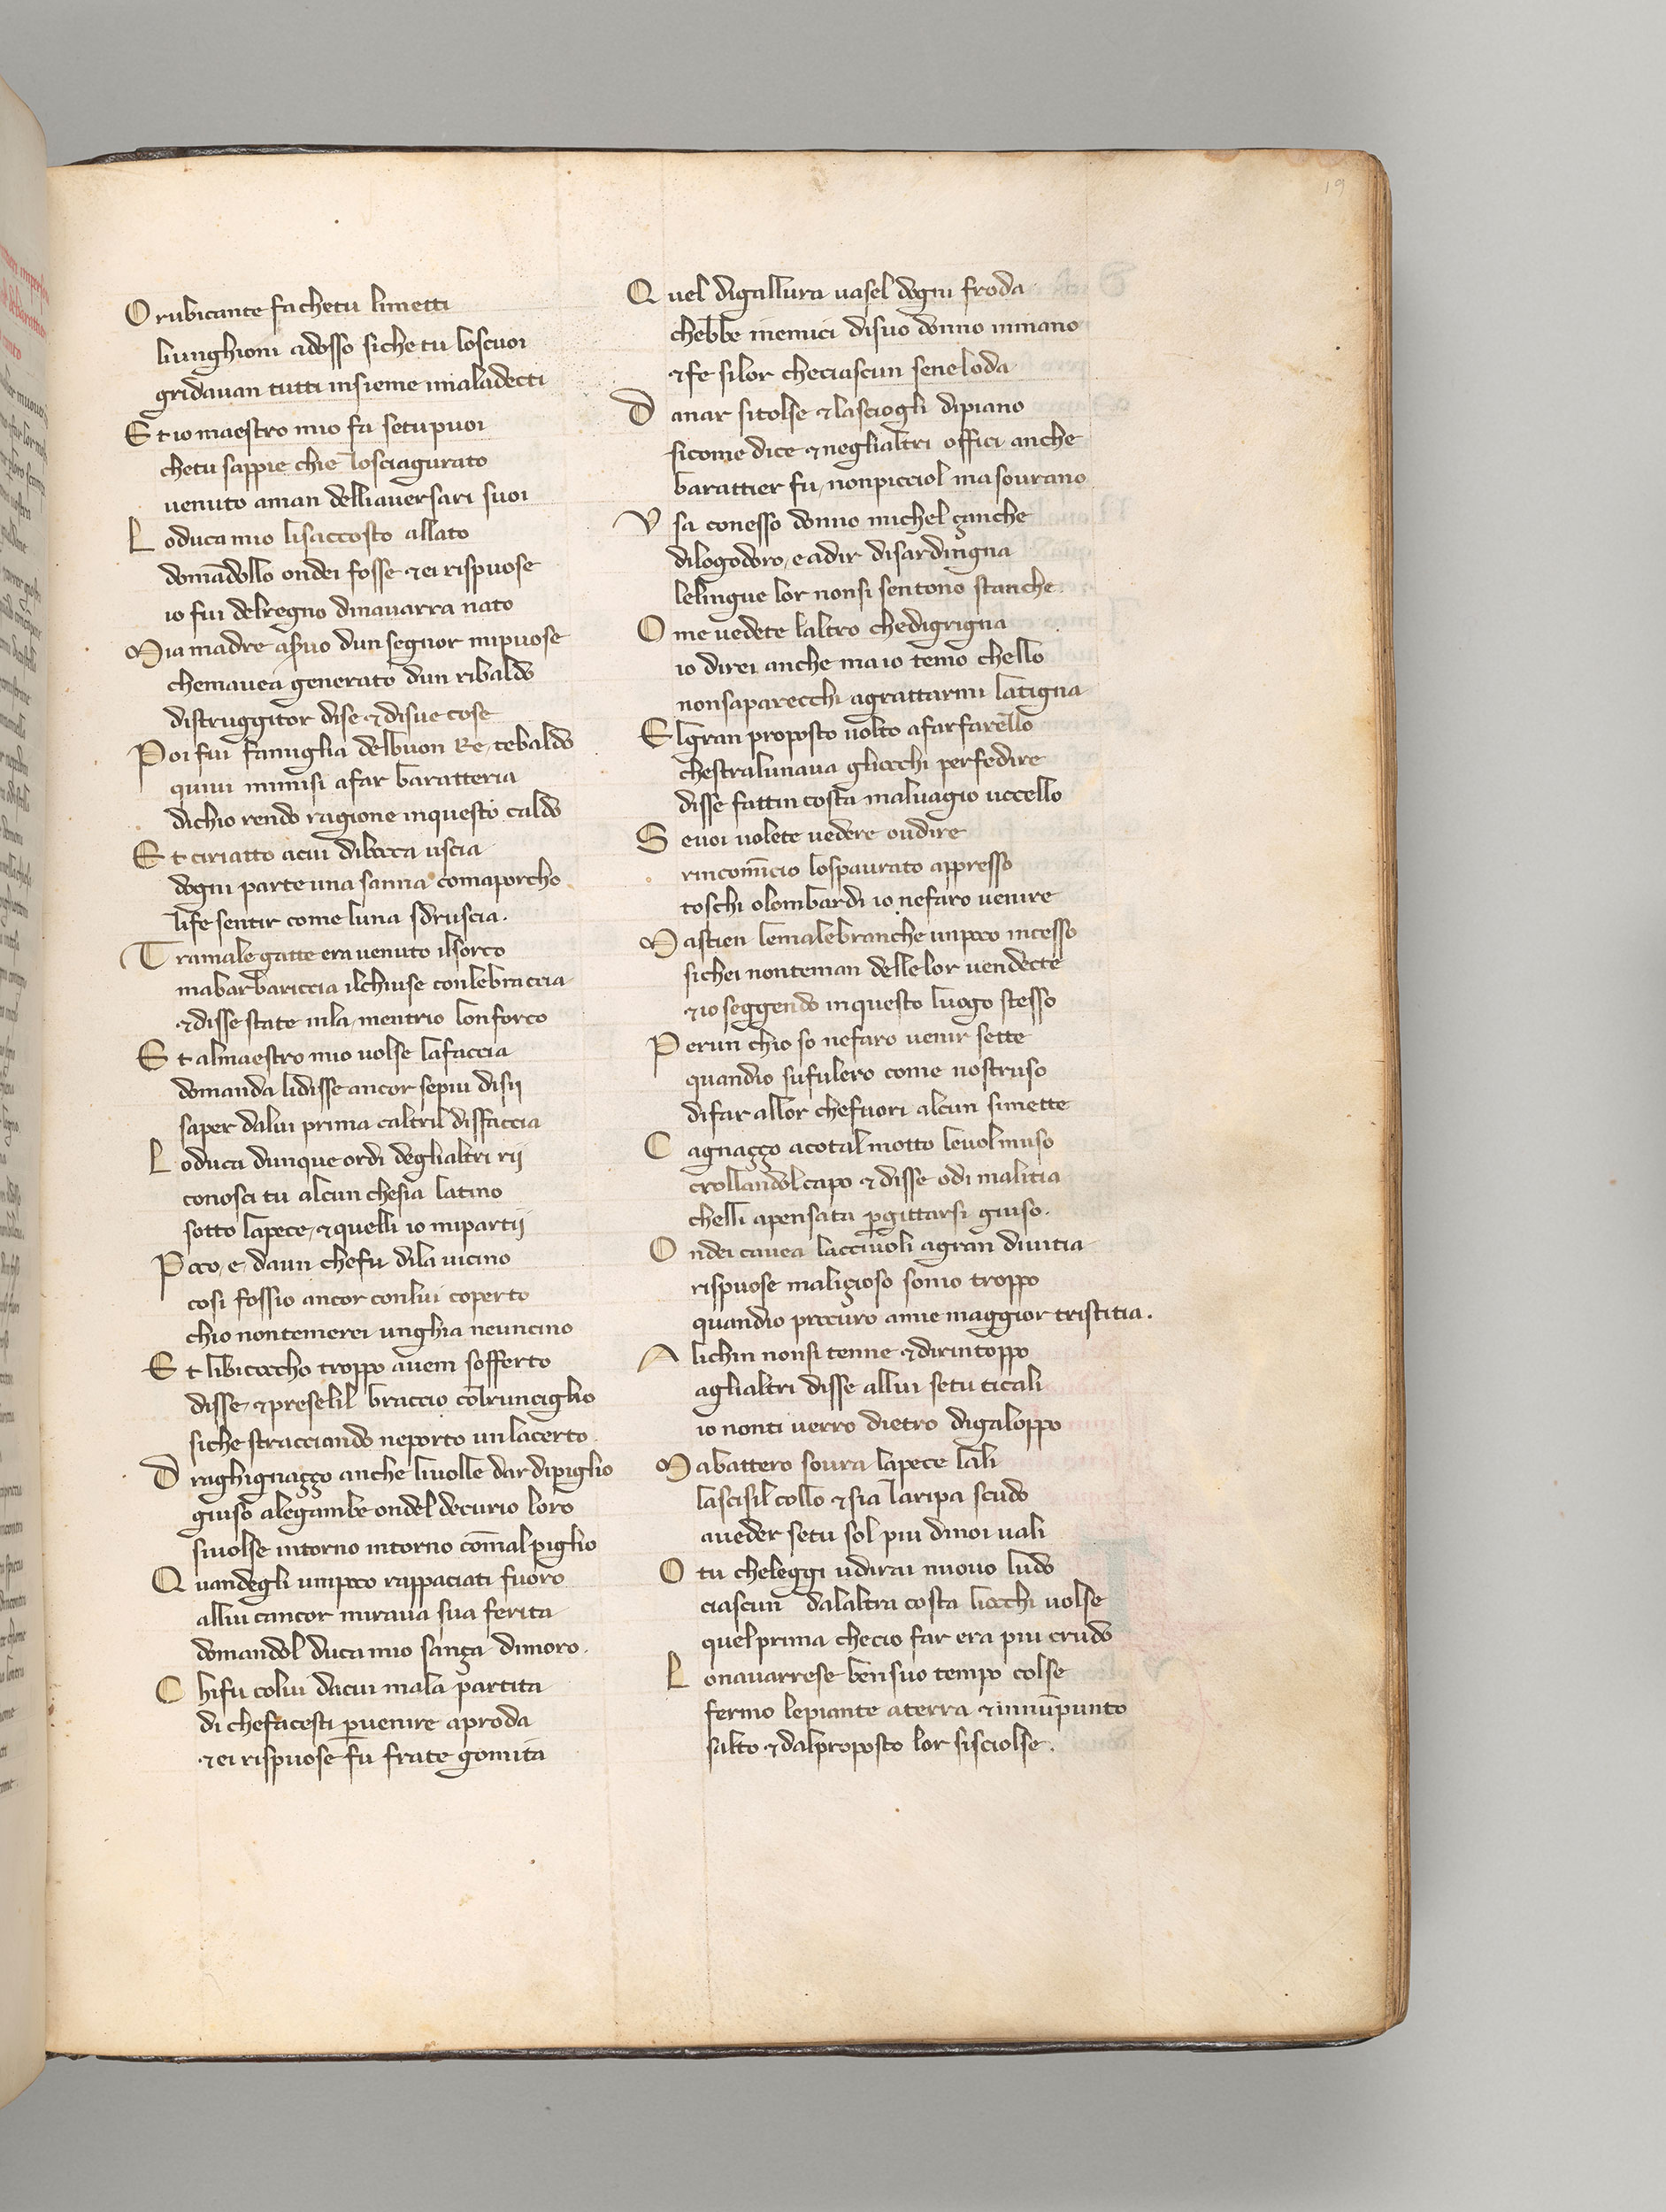 19
O rubicante fa chetu limetti
liunghioni adosso siche tu loscuoi
gridauan tutti insieme imaladecti
E t io maestro mio fa setu puoi
chetu sappie chie losciagurato
uenuto aman delliauersari suoi
L oduca mio lisaccosto allato
domādollo ondei fosse ⁊ ei rispuose
io fui delregno dinauarra nato
M ia madre aseruo dun segnor mipuose
chemauea generato dun ribaldo
distruggitor dise ⁊ disue cose
P oi fui famiglia delbuon Re tebaldo
quiui mimisi afar baratteria
dichio rendo ragione inquesto caldo
E t ciriatto acui dibocca uscia
dogni parte una sanna comaporcho
life sentir come luna sdruscia.
T ramale gatte era uenuto ilsorco
mabarbariccia ilchiuse conlebraccia
⁊ disse state inla, mentrio lonforco
E t almaestro mio uolse lafaccia
domanda lidisse ancor sepiu disij
saper dalui prima caltril disfaccia
L oduca dunque ordi deglialtri rij
conosci tu alcun chesia latino
sotto lapece, ⁊ quelli io mipartij
P oco, e, daun chefu dila uicino
cosi fossio ancor conlui coperto
chio nontemerei unghia neuncino
E t libicoccho troppo auem sofferto
disse, ⁊ preselil braccio colrunciglio
siche stracciando neporto un lacerto
D raghignaçço anche liuolle dar dipiglio
giuso alegambe ondel decurio loro
siuolse intorno intorno comal piglio
Q uandegli umpoco rappaciati fuoro
allui cancor miraua sua ferita
domandol duca mio sança dimoro.
C hifu colui dacui mala partita
di chefacesti puenire aproda
⁊ ei rispuose fu frate gomita
Q uel digallura uasel dogni froda
chebbe inemici disuo donno inmano
⁊ fe silor checiascun seneloda
D anar sitolse ⁊ lasciogli dipiano
sicome dice ⁊ neglialtri offici anche
barattier fu, nonpicciol masourano
U sa conesso donno michel çanche
dilogodoro, e adir disardingna
lelingue lor nonsi sentono stanche
O me uedete laltro chedigrigna
io direi anche ma io temo chello
nonsaparecchi agrattarmi latigna
E lgran proposto uolto afarfarello
chestralunaua gliocchi perfedire
disse fattin costa maluagio uccello
S euoi uolete uedere oudire
rincomīcio lospaurato appresso
toschi olombardi io nefaro uenire
M astien lemalebranche unpoco incesso
sichei nonteman dellelor uendecte
⁊ io seggendo inquesto luogo stesso
P erun chio so nefaro uenir sette
quandio sufulero come nostruso
difar allor chefuori alcun simette
C agnaçço acotalmotto leuolmuso
crollandol capo ⁊ disse odi malitia
chelli apensata pgittarsi giuso.
O ndei cauea lacciuoli agran diuitia
rispuose maligioso sonio troppo
quandio procuro amie maggior tristitia.
A lichin nonsi tenne ⁊ dirintoppo
aglialtri disse allui setu ticali
io nonti uerro dietro digaloppo
M abattero soura lapece lali
lascisil collo ⁊ sia laripa scudo
aueder setu sol piu dinoi uali
O tu cheleggi udirai nuouo ludo
ciascun dalaltra costa liocchi uolse
quelprima checio far era piu crudo
L onauarrese bensuo tempo colse
fermo lepiante aterra ⁊ innūpunto
salto ⁊ dalproposto lor sisciolse.